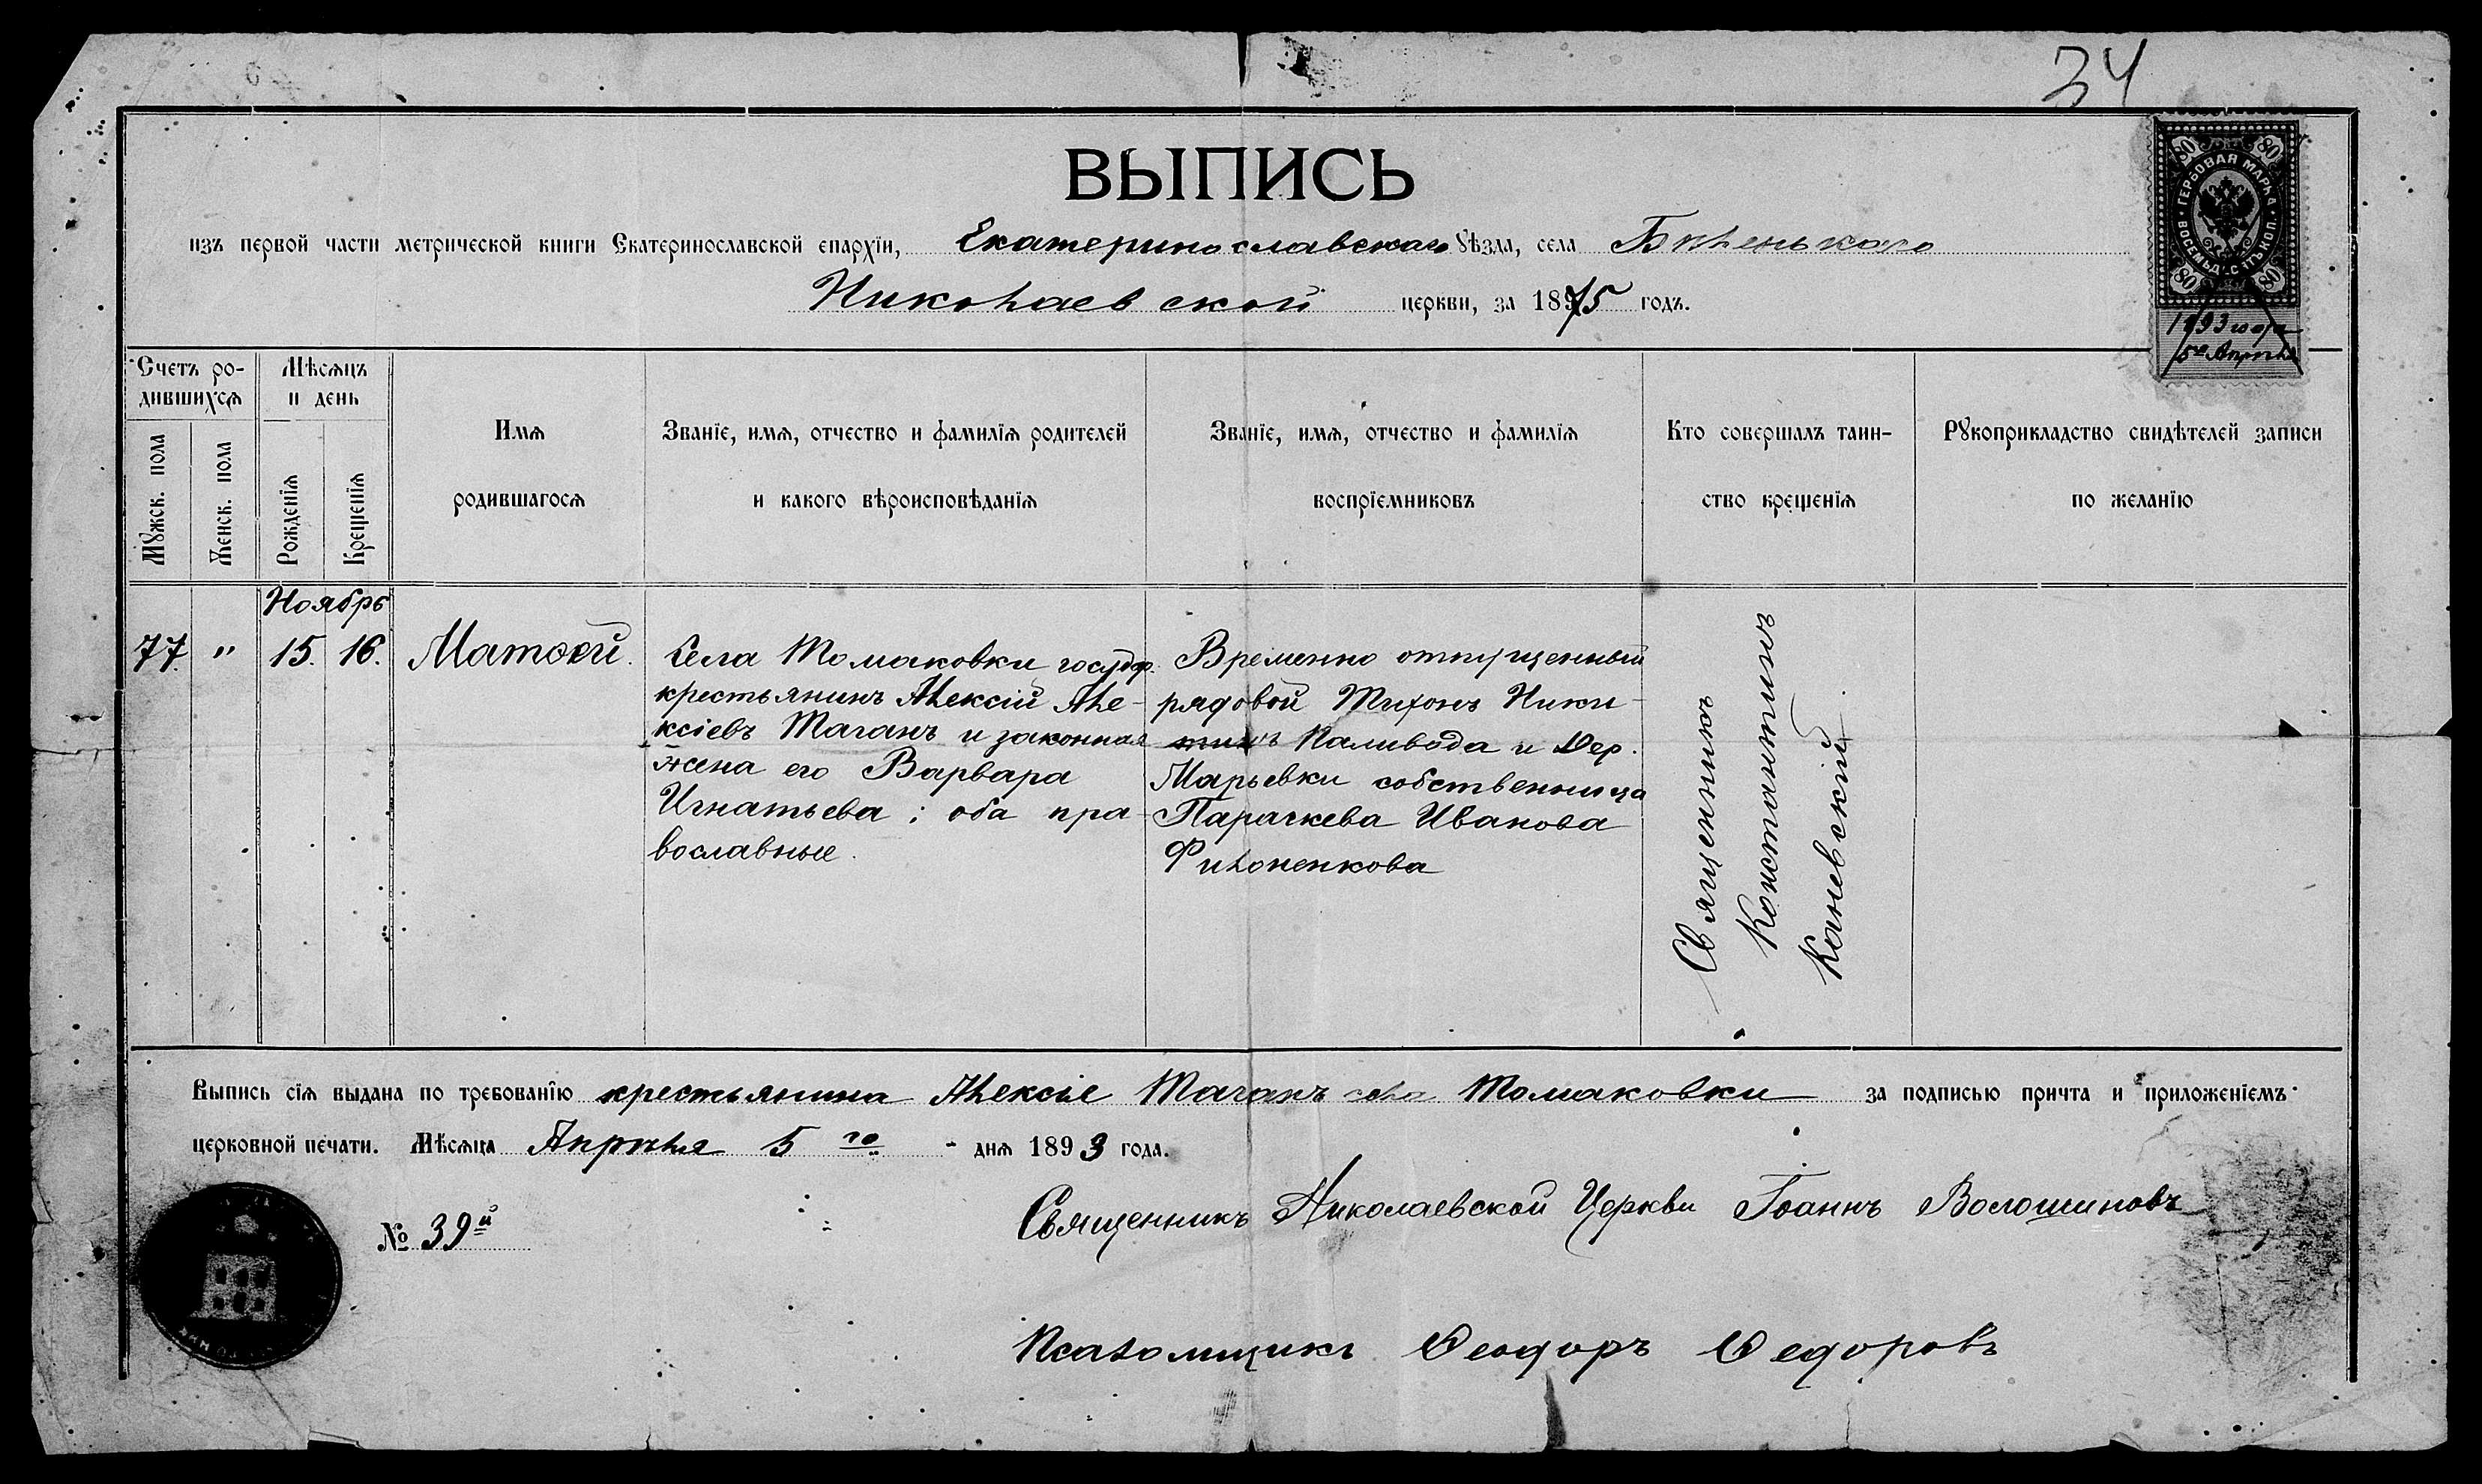 34
ВЫПИСЬ
изъ первой части метрической книги Екатеринославской епархїи, Екатеринославскаго Уѣзда, села Бѣленькаго
Николаевской церкви, за 1875 годъ.
ГЕРБОВАЯ МАРКА ВОСЕМЬДЕСЯТЪ КОП.
80 80
80 80
1893 года
5го Апрѣля
Счетъ ро-
дившихся
Мѣсяцъ
и день
Мужск. пола
Женск. пола
Рожденїя
Крещенїя
Имя
родившагося
Званїе, имя, отчество и фамилїя родителей
и какого вѣроисповѣданїя
Званїе, имя, отчество и фамилїя
воспрїемниковъ
Кто совершалъ таин-
ство крещенїя
Рукоприкладство свидѣтелей записи
по желанїю
Ноябрь
77. " 15. 16. Матѳей.
Села Томаковки государ.
крестьянинъ Алексій Але-
ксіевъ Таганъ и законная
жена его Варвара
Игнатьева; оба пра-
вославные.
Временно отпущенный
рядовой Тихонъ Ники-
тинъ Паливода и Дер.
Марьевки собственница
Параскева Иванова
Филоненкова
Священникъ
Константинъ
Каневскій
Выпись сїя выдана по требованїю крестьянина Алексіе Таганъ села Томаковки за подписью причта и приложенїемъ
церковной печати. Мѣсяца Апрѣля 5го дня 1893 года.
№ 39й
Священникъ Николаевской Церкви Іоаннъ Волошиновъ
Псаломщикъ Ѳеодоръ Ѳедоровъ